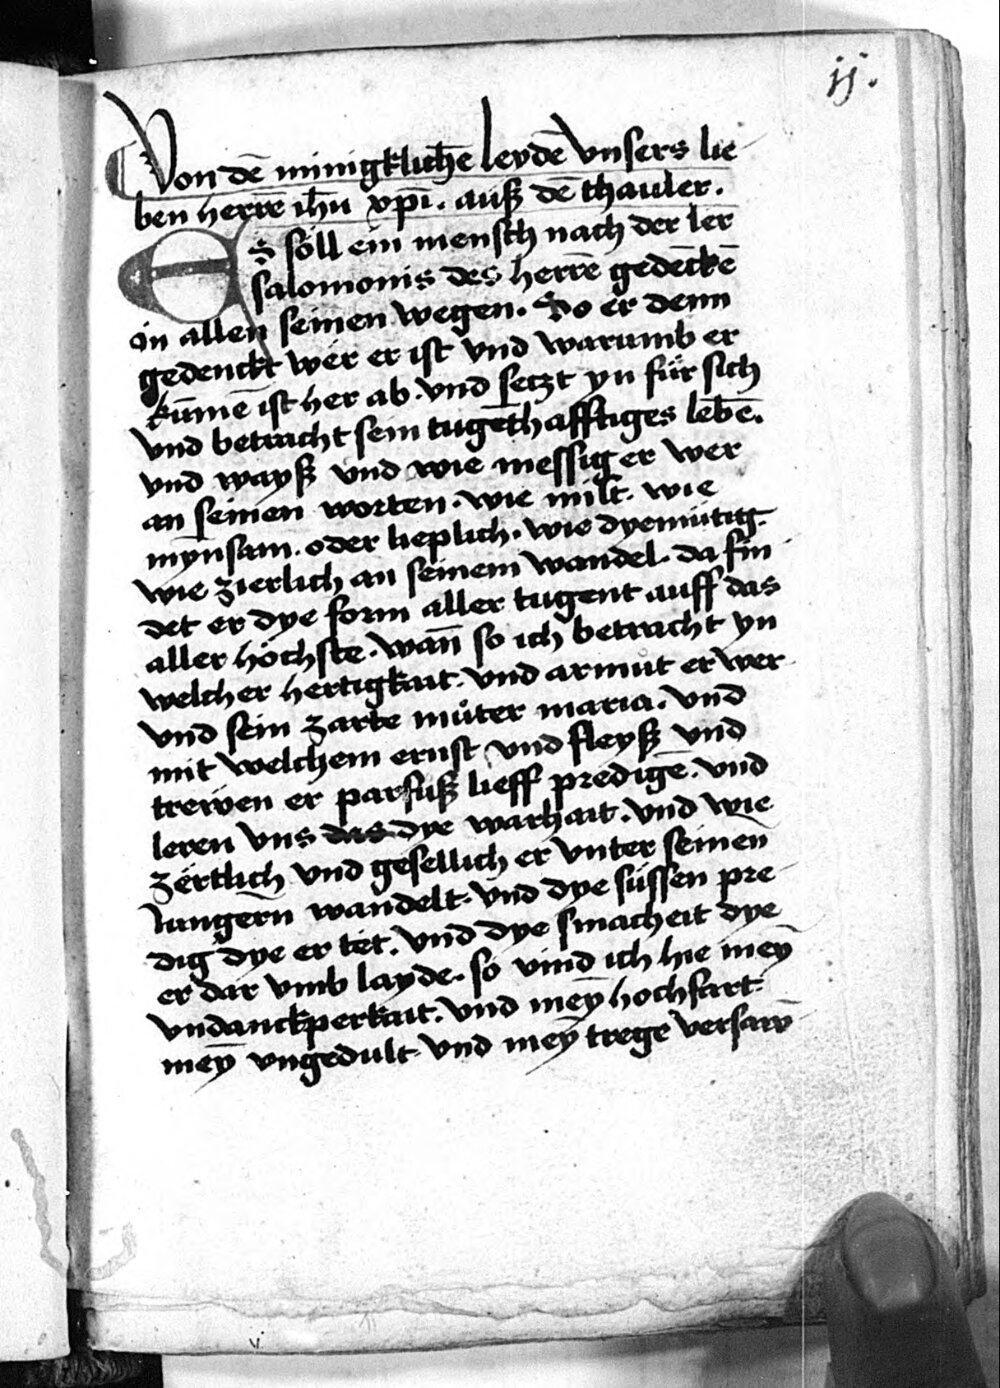 ij.
Von dē minigklichē leydē vnsers lie
ben herrē ihū xpī. auß dē thauler.
Es söll ein mensch nach der ler
salomonis des herrē gedēckē
in allen seinen wegen. So er denn
gedenckt wer er ist vnd warumb er
kūmē ist her ab. vnd setzt yn für sich
vnd betracht sein tugēthafftiges lebē.
vnd wayß vnd wie messig er wer
an seinen worten. wie milt. wie
mynsam. oder lieplich. wie dyemütig.
wie zierlich an seinem wandel. da fin
det er dye form aller tugent auff das
aller höchste. wañ so ich betracht yn
welcher hertigkait. vnd armut er wer
vnd sein zarte müter maria. vnd
mit welchem ernst vnd fleyß vnd
trewen er parfuß lieff predigē. vnd
leren vns das dye warhait. vnd wie
zërtlich vnd gesellich er vnter seinen
iungerñ wandelt. vnd dye süssen pre
dig dye er tët. vnd dye smacheit dye
er dar vmb layde. so vind ich hie mey̅
vndanckperkait. vnd mey̅ hochfart.
mey̅ vngedult vnd mey̅ trege versaw